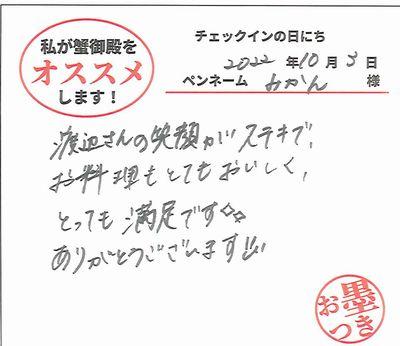 私が蟹御殿を
オススメ
します！
チェックインの日にち
2022年10月3日
ペンネーム みかん 様
渡辺さんの笑顔がステキで、
お料理もとてもおいしく、
とっても満足です✧✧
ありがとうございます
お墨
つき